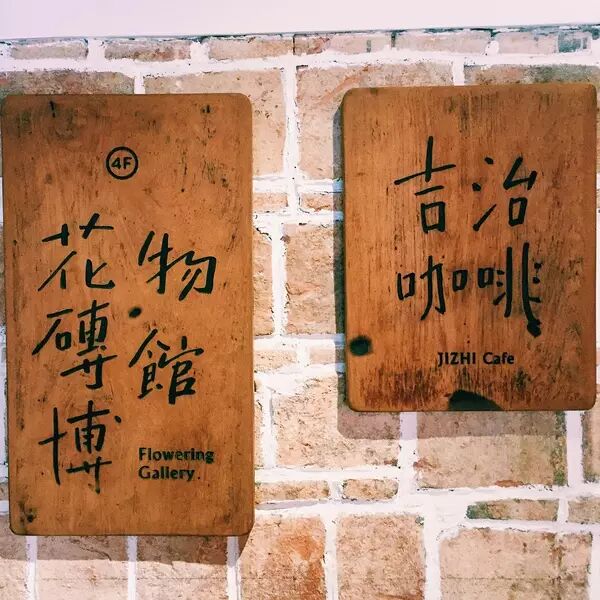 4F
花磚博
物館
Flowering
Gallery
吉治
咖啡
JIZHI Cafe